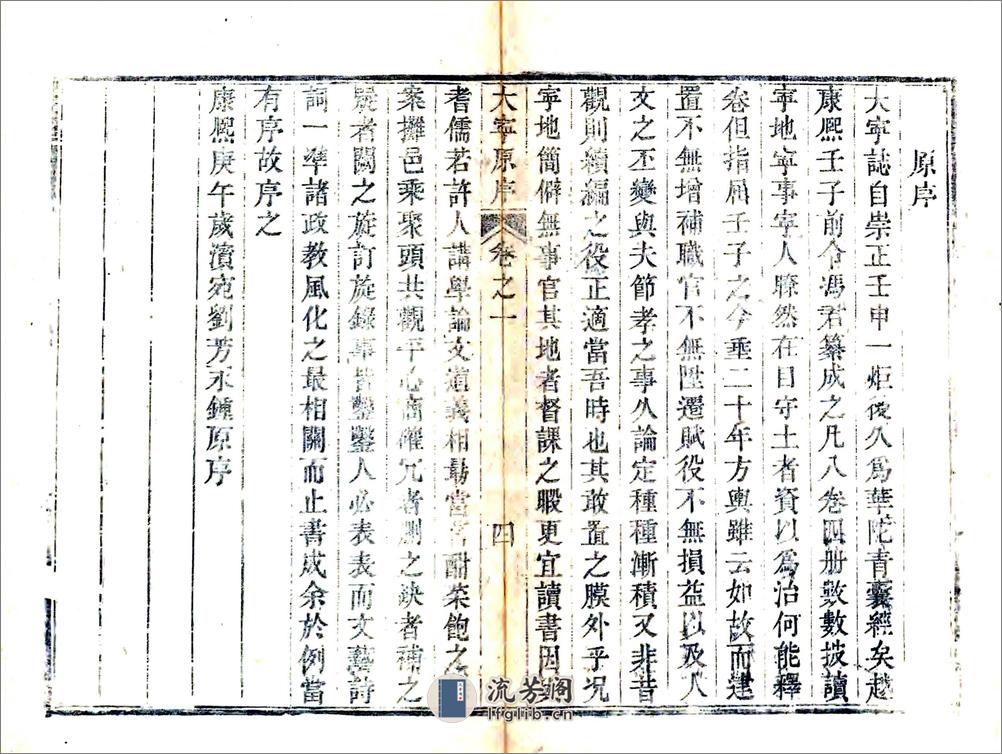 原序
大寧誌自崇正壬申一炬後久爲華陀青囊經矣越
康熙壬子前令馮君纂成之凡八卷四册數數披讀
寧地寧事寧人瞭然在目守土者資以爲治何能釋
卷但指屈壬子之今垂二十年方輿雖云如故而建
置不無增補職官不無陞遷賦役不無損益以及人
文之丕變與夫節孝之事久論定種種漸積又非昔
觀則續編之役正適當吾時也其敢置之膜外乎况
寧地簡僻無事官其地者督課之暇更宜讀書因
大寧原序 卷之一 四
耆儒若許人講學論文道義相勗當茗酣菜飽之
案攤邑乘聚頭共觀平心商確冗者删之缺者補之
疑者闕之旋訂旋錄事皆鑿鑿人必表表而文藝詩
詞一準諸政教風化之最相關而止書成余於例當
有序故序之
康熙庚午歲濱宛劉芳永鍾原序
流芳閣
lfglib.cn